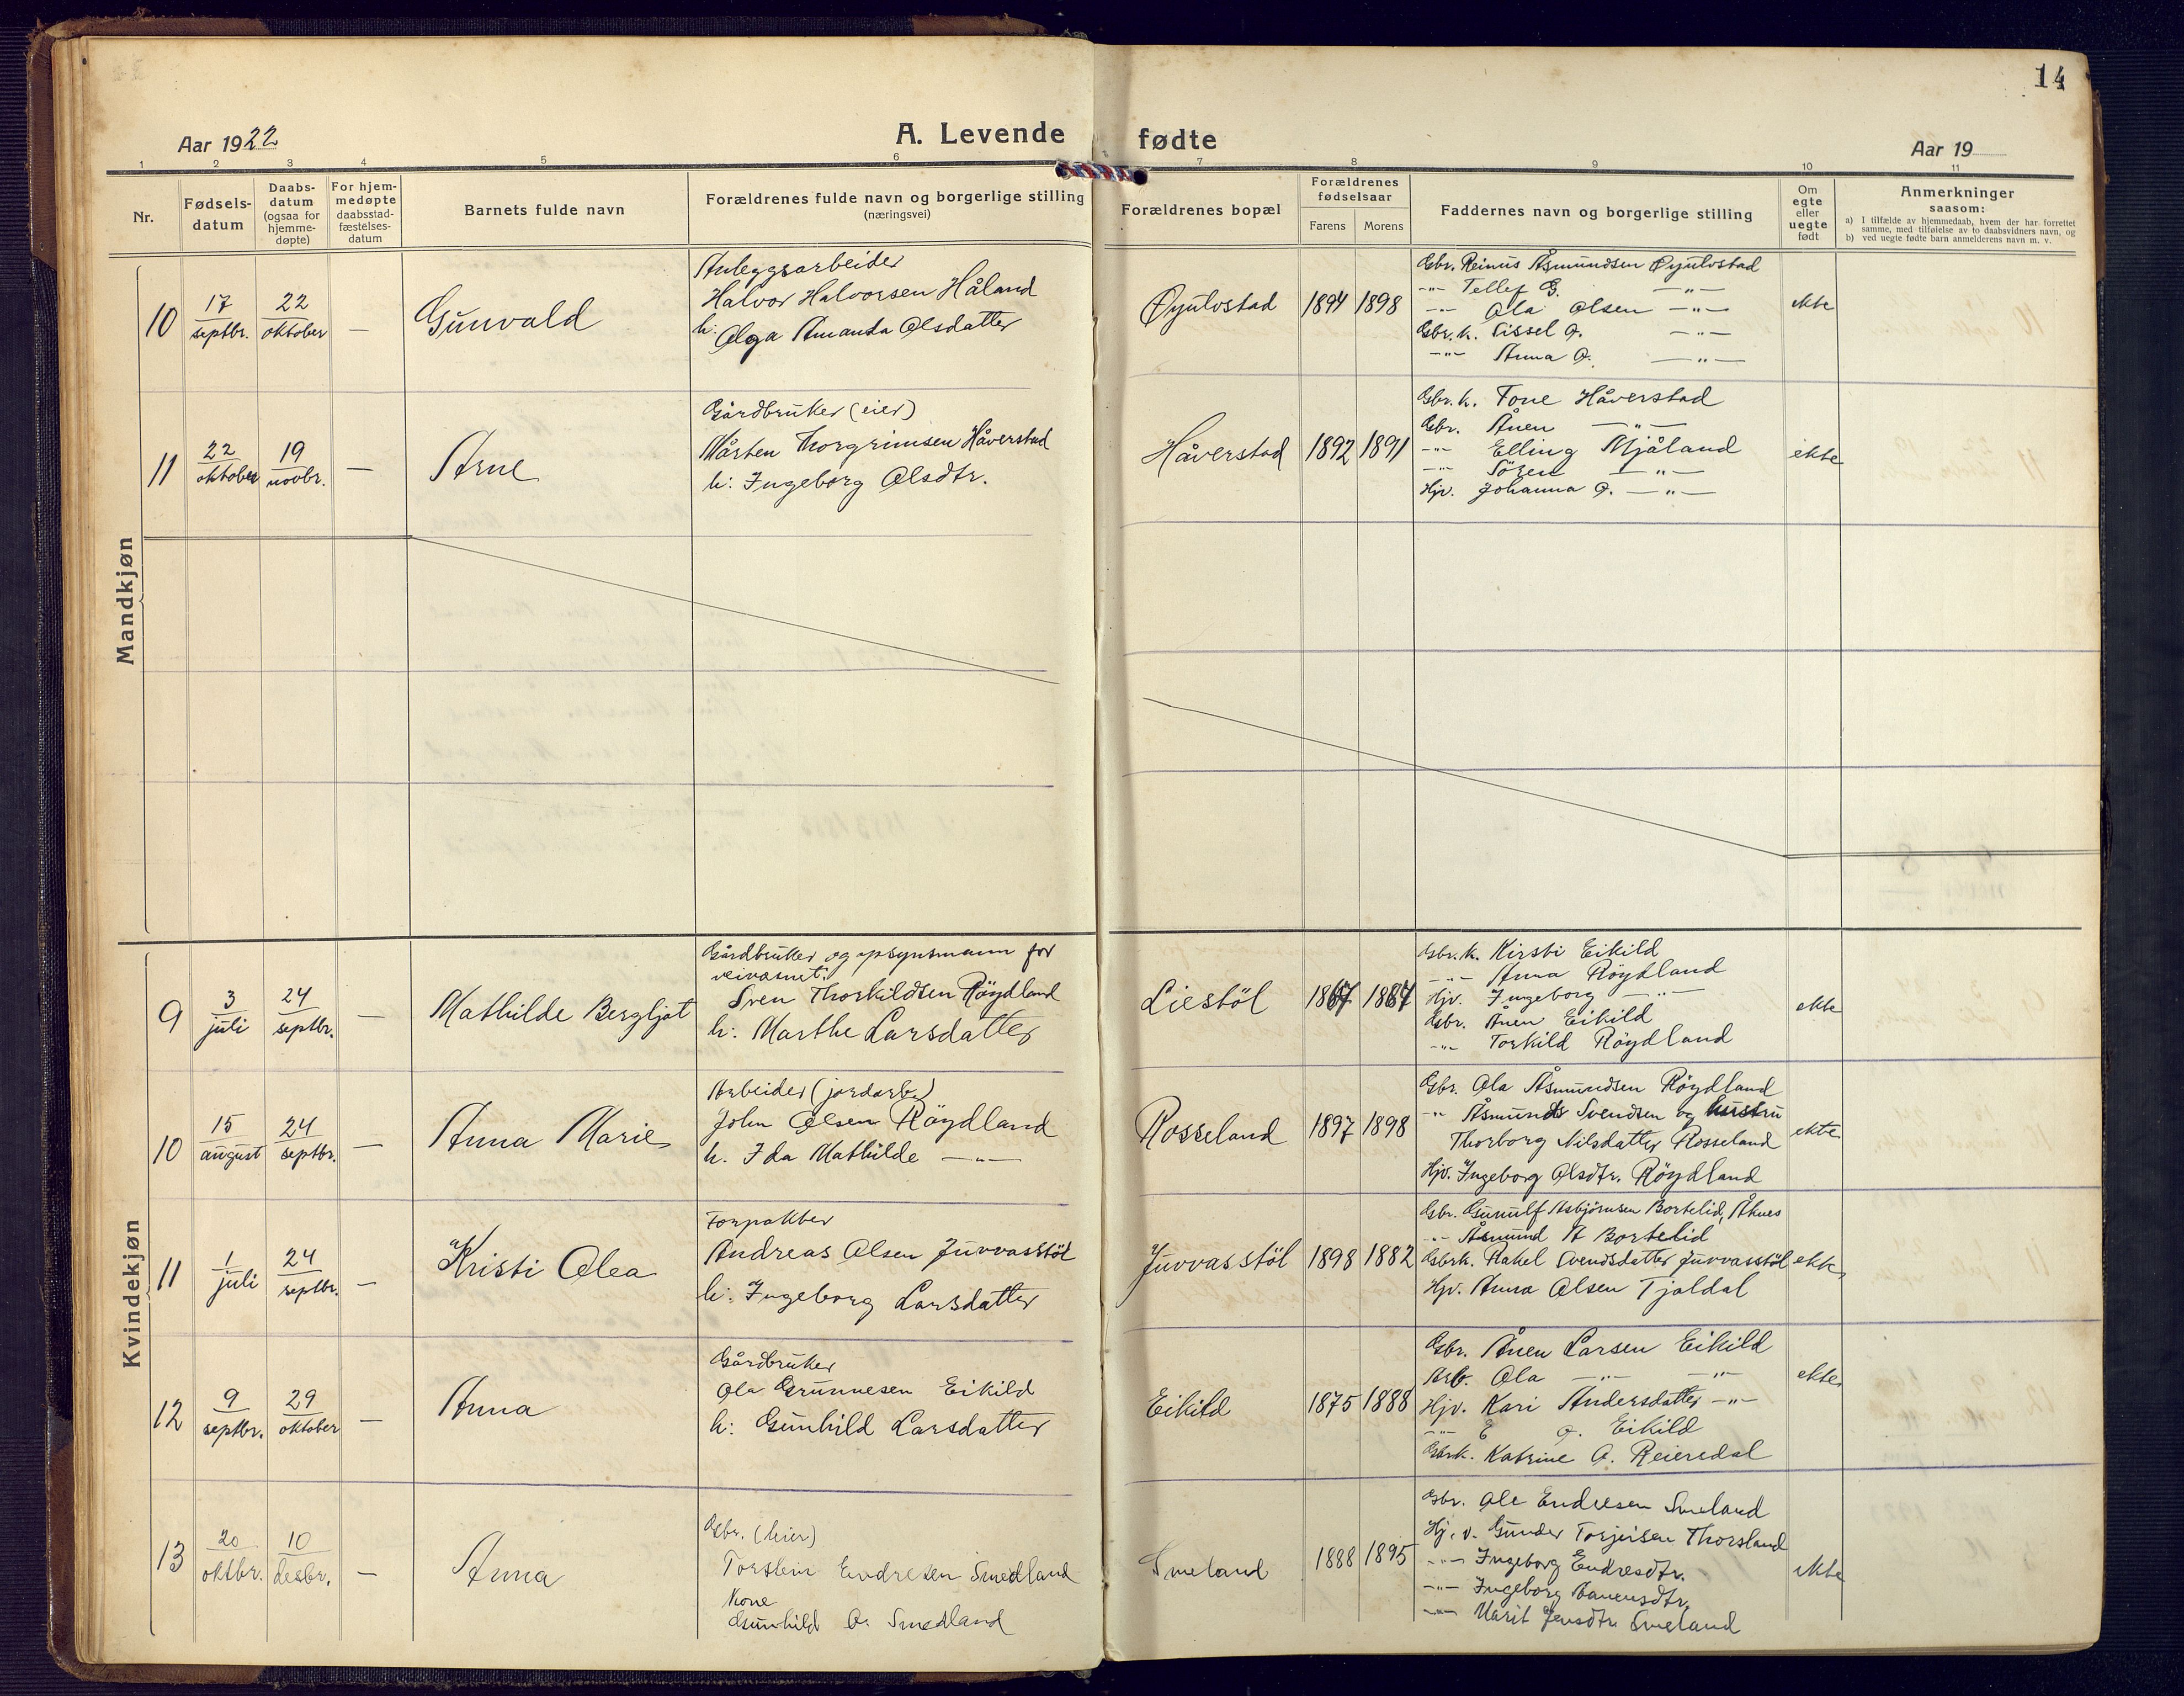 14
Aar 1922
A. Levende fødte
Aar 19
1 2 3 4 5 6 7 8 9 10 11
Nr.
Fødsels-
datum
Daabs-
datum
(ogsaa for
hjemme-
døpte)
For hjem-
medøpte
daabsstad-
fæstelses-
datum
Barnets fulde navn
Forældrenes fulde navn og borgerlige stilling
(næringsvei)
Forældrenes bopæl
Forældrenes
fødselsaar
Farens Morens
Faddernes navn og borgerlige stilling
Om
egte
eller
uegte
født
Anmerkninger
saasom:
a) I tilfælde av hjemmedaab, hvem der har forrettet
samme, med tilføielse av to daabsvidners navn, og
b) ved uegte fødte barn anmelderens navn m. v.
Mandkjøn
10
17
septbr.
22
oktober
—
Gunvald
Anleggsarbeider
Halvor Halvorsen Håland
h: Olga Amanda Olsdatter
Øyulvstad
1894 1898
Gbr. Reinus Åsmundsen Øyulvstad
-"- Tellef G. -"-
-"- Ola Olsen -"-
Gbr. k. Sissel O. -"-
-"- Anna O. -"-
ekte
11
22
oktober
19
novbr.
—
Arne
Gårdbruker (eier)
Mårten Thorgrimsen Håverstad
h: Ingeborg Olsdtr.
Håverstad
1892 1891
Gbr. k. Tone Håverstad
Gbr. Ånen -"-
-"- Elling Mjåland
-"- Sören -"-
Hjv. Johanna O. -"-
ekte
Kvindekjøn
9
3
juli
24
septbr.
—
Mathilde Bergljot
Gårdbruker og opsynsmann for
veivæsnet:
Sven Thorkildsen Röydland
h: Marthe Larsdatter
Liestöl
1867 1887
Gbr. k. Kirsti Eikild
-"- Anna Röydland
Hjv. Ingeborg -"-
Gbr. Ånen Eikild
-"- Torkild Röydland
ekte
10
15
august
24
septbr.
—
Anna Marie
Arbeider (jordarb.)
John Olsen Röydland
h. Ida Mathilde -"-
Rosseland
1897 1898
Gbr. Ola Åsmundsen Röydland
-"- Åsmund Svendsen og hustru
Thorborg Nilsdatter Rosseland
Hjv. Ingeborg Olsdtr. Röydland
ekte
11
1
juli
24
septbr.
—
Kristi Olea
Forpakter
Andreas Olsen Juvvasstöl
h: Ingeborg Larsdatter
Juvvasstöl
1898 1882
Gbr. Gunulf Asbjörnsen Bortelid, Åknes
-"- Åsmund A Bortelid
Gbrk. Rakel Svendsdatter Juvvasstöl
Hjv. Anna Olsen Tjaldal
ekte
12
9
septbr.
29
oktober
—
Anna
Gårdbruker
Ola Grunnesen Eikild
h: Gunhild Larsdatter
Eikild
1875 1888
Gbr. Ånen Larsen Eikild
Arb. Ola -"- -"-
Hjv. Kari Andersdatter -"-
-"- E O. Eikild
Gbrk. Katrine A. Reiersdal
ekte
13
20
oktbr.
10
desbr.
—
Anna
Gbr.
Torstein Endresen Smedland
Kone
Gunhild O. Smedland
Smeland
1888 1895
Gbr. Ole Endresen Smeland
Hj. v. Gunder Torjeisen Thorsland
-"- Ingeborg Endresdtr.
-"- Ingeborg
-"- Marit Jensdtr. Smeland
ekte